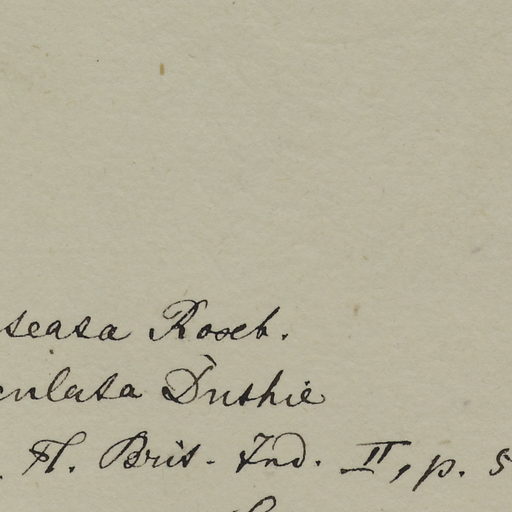 seasa Roxb.
culata Duthie
. Fl. Brit. Ind. II, p. 5